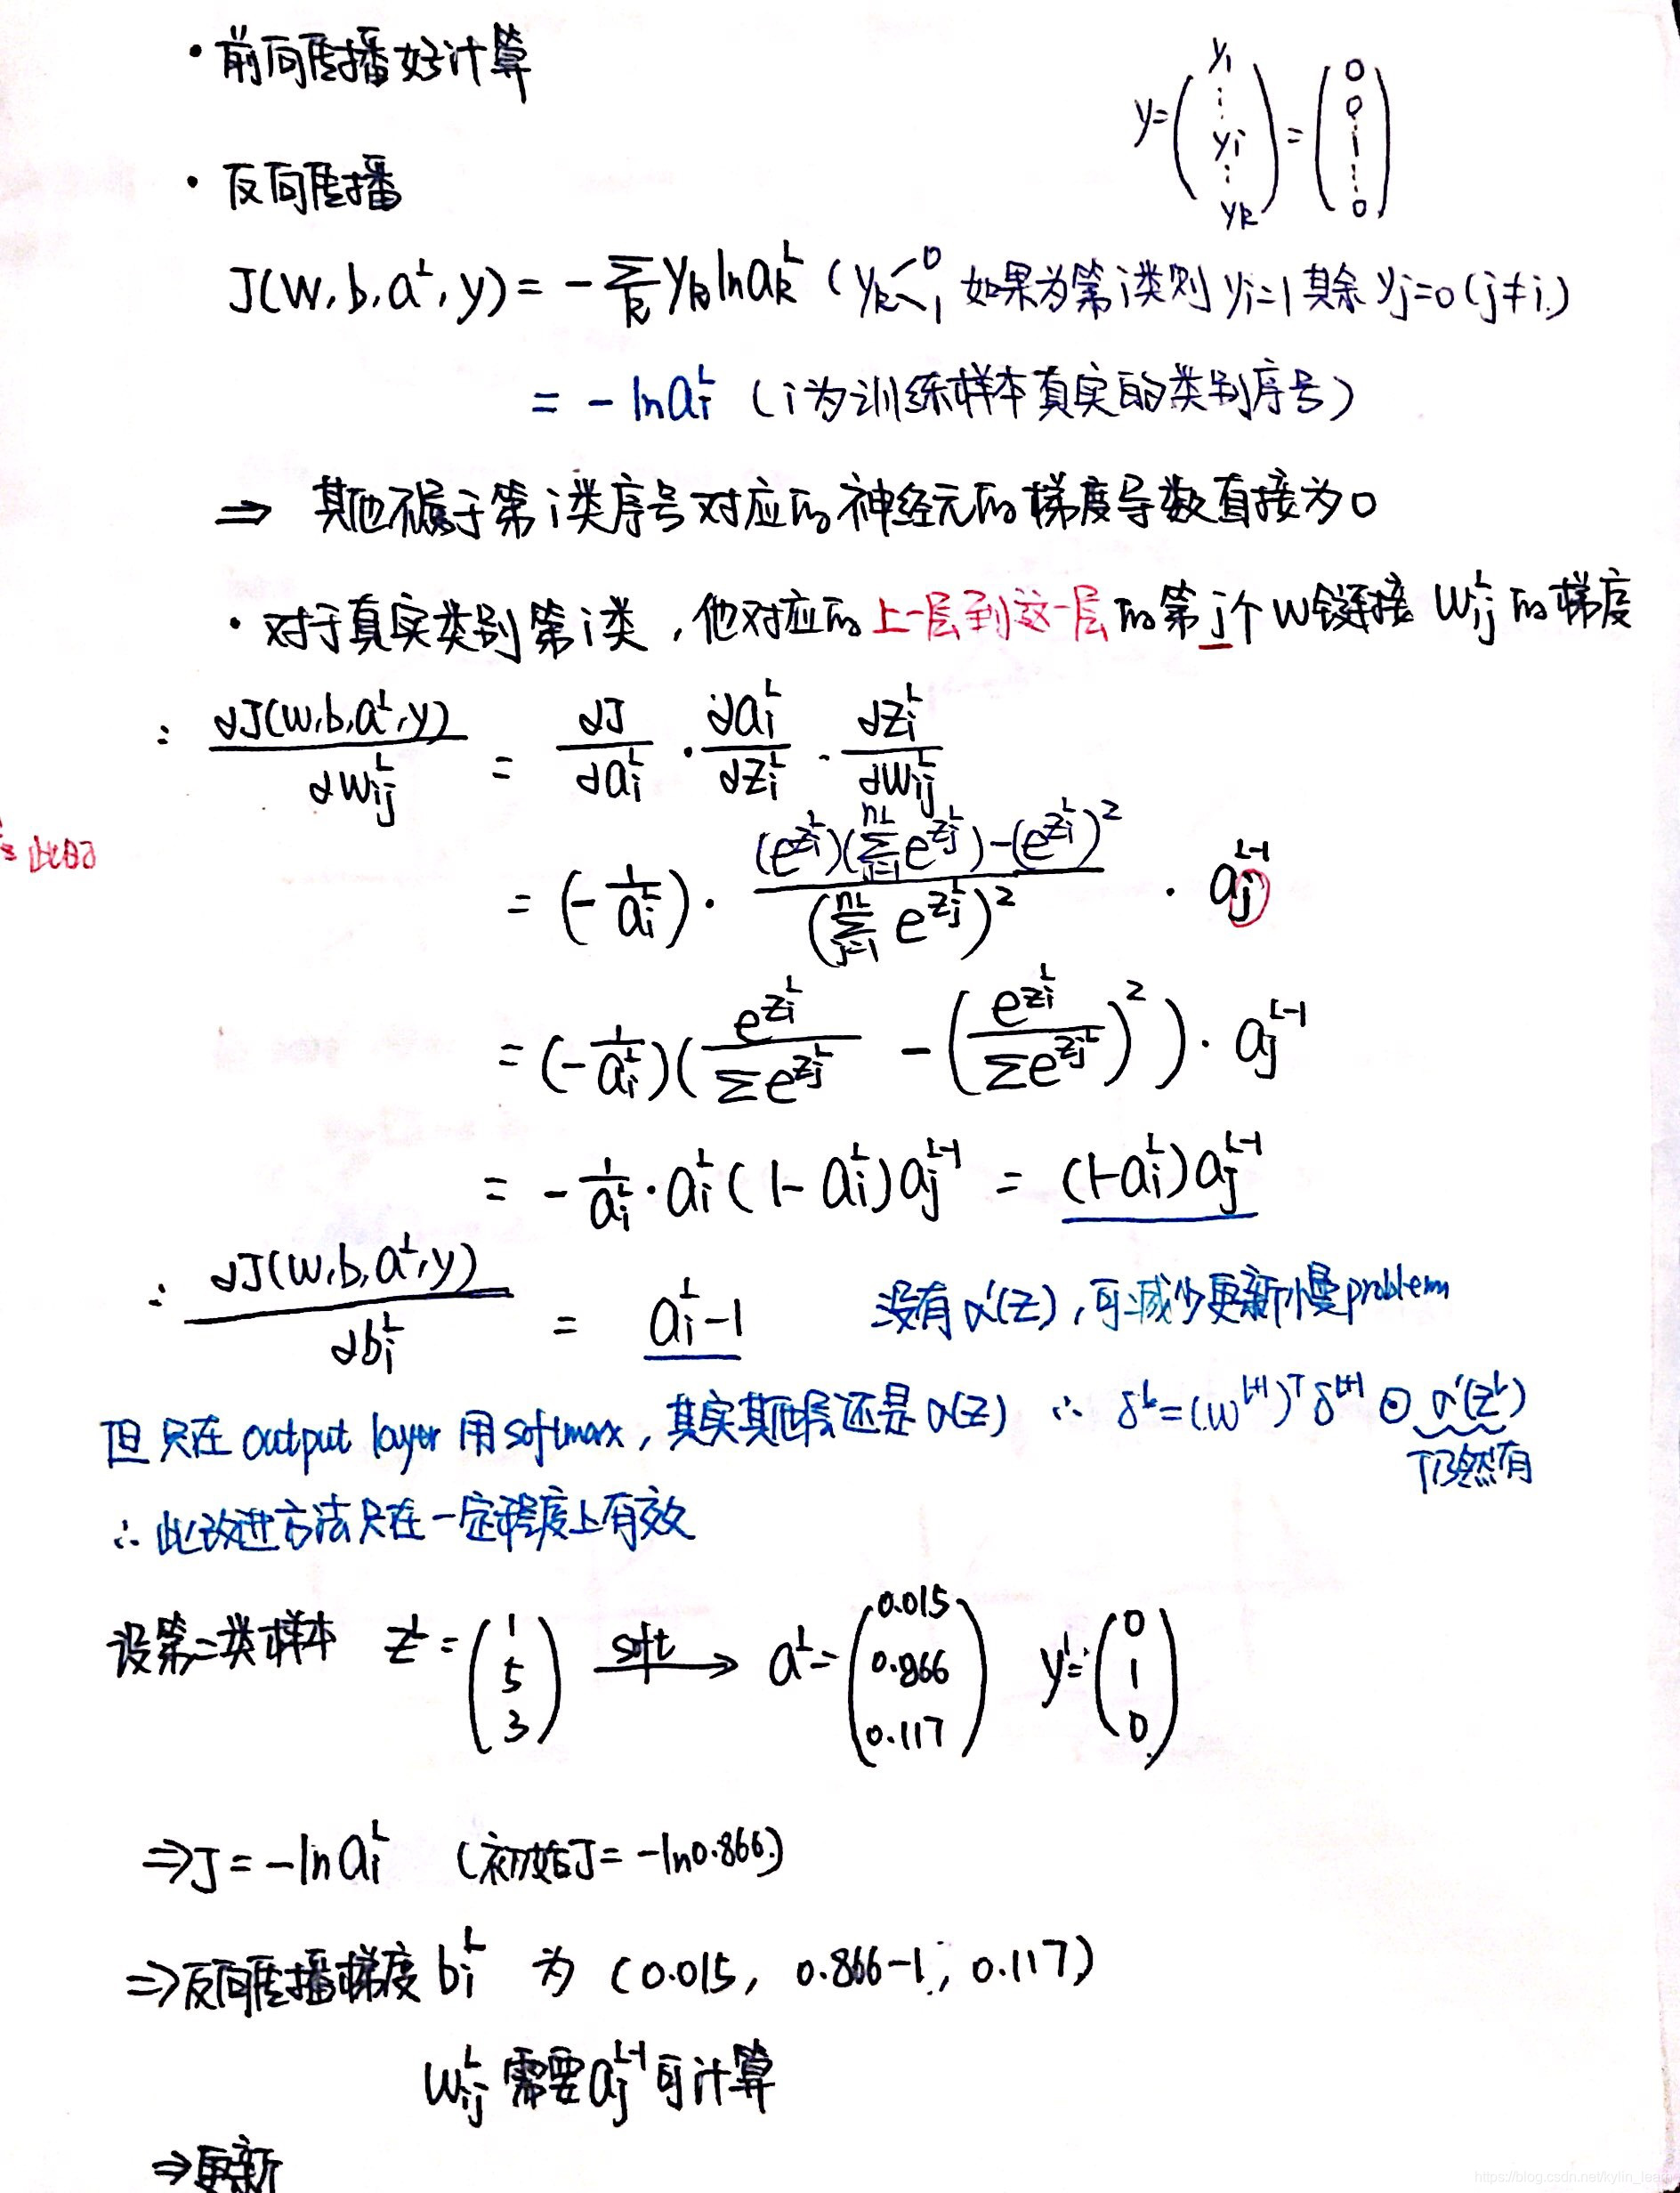 · 前向传播好计算
y = (y₁ ⋮ yᵢ ⋮ yₖ) = (0 0 1 ⋮ 0)
· 反向传播
J(W,b,a^L,y) = -∑_k y_k ln a_k^L ( y_k < 0 1 如果为第i类则 y_i=1 其余 y_j=0 (j≠i)
= -ln a_i^L (i为训练样本真实的类别序号)
⇒ 其他不属于第i类序号对应的神经元的梯度导数直接为0
· 对于真实类别第i类,他对应的上一层到这一层的第j个W链接 W_ij^L 的梯度
: ∂J(W,b,a^L,y)/∂W_ij^L = ∂J/∂a_i^L · ∂a_i^L/∂z_i^L · ∂z_i^L/∂W_ij^L
此时
= (-1/a_i^L) · ((e^{z_i^L})(∑_{j=1}^{n_L} e^{z_j^L}) - (e^{z_i^L})²)/(∑_{j=1}^{n_L} e^{z_j^L})² · a_j^{L-1}
= (-1/a_i^L)(e^{z_i^L}/∑e^{z_j^L} - (e^{z_i^L}/∑e^{z_j^L})²) · a_j^{L-1}
= -1/a_i^L · a_i^L(1-a_i^L)a_j^{L-1} = (1-a_i^L)a_j^{L-1}
: ∂J(W,b,a^L,y)/∂b_i^L = a_i^L-1 没有σ'(z),可减少更新慢problem
但只在output layer用softmax,其实其他层还是σ(z) ∴ δ^L=(W^{L+1})^T δ^{L+1} ⊙ σ'(z^L)
仍然有
∴ 此改进方法只在一定程度上有效
设第二类样本 z^L = (1 5 3) soft→ a^L = (0.015 0.866 0.117) y^L = (0 1 0)
⇒J = -ln a_i^L (初始J = -ln0.866)
⇒反向传播梯度 b_i^L 为 (0.015, 0.866-1, 0.117)
W_ij^L 需要 a_j^{L-1} 可计算
⇒更新